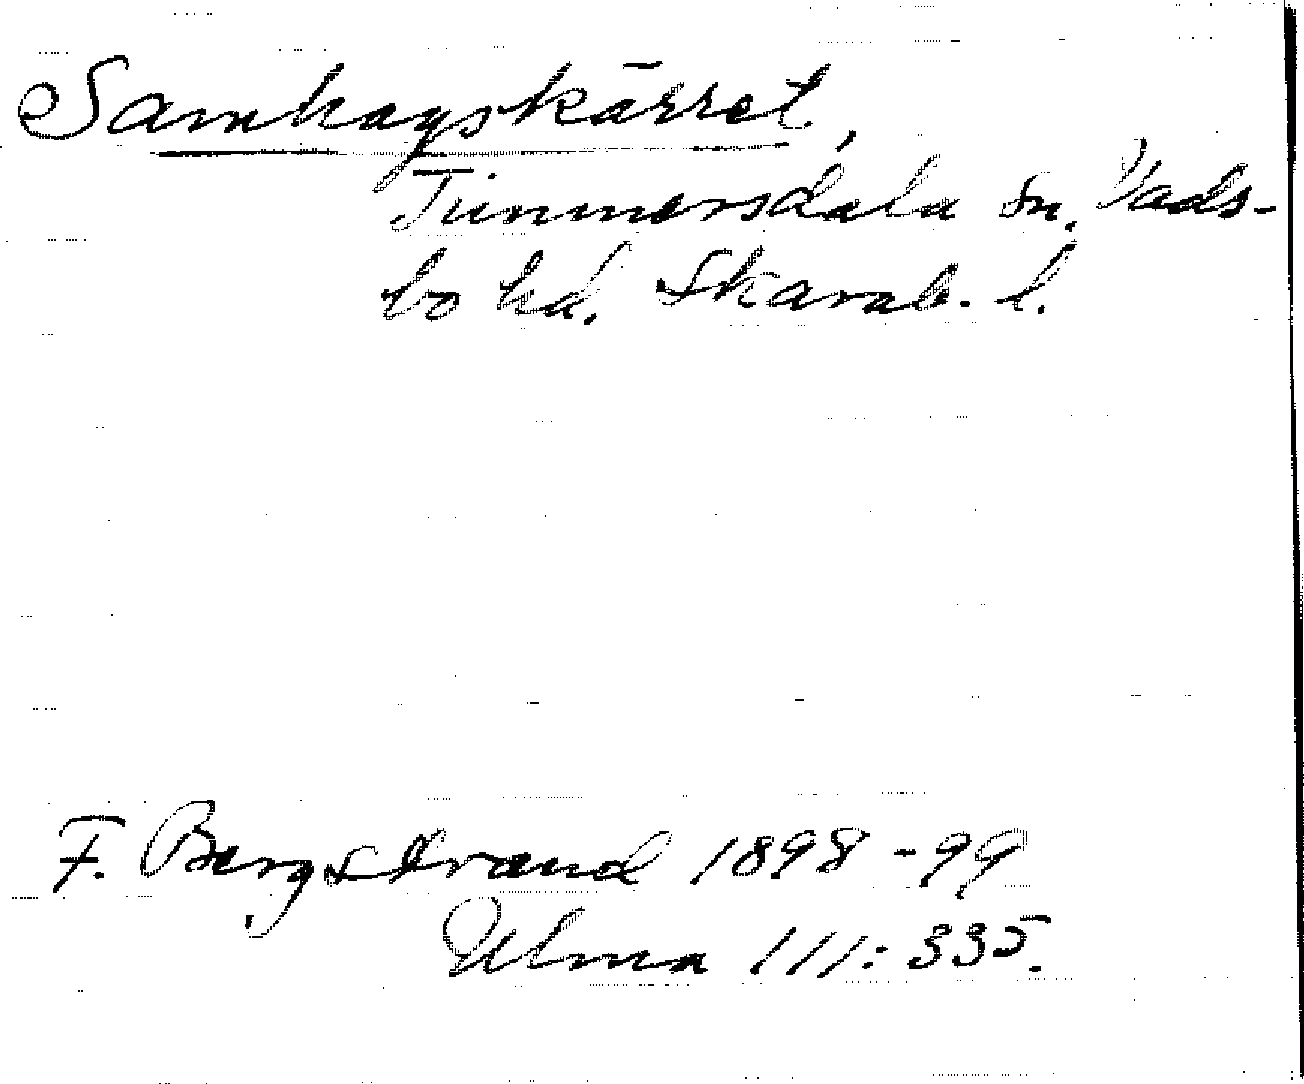 Samhagskärret,
Timmersdala sn. Vads-
bo hd. Skarab. l.
F. Bergstrand 1898-99
Ulma 111:335.